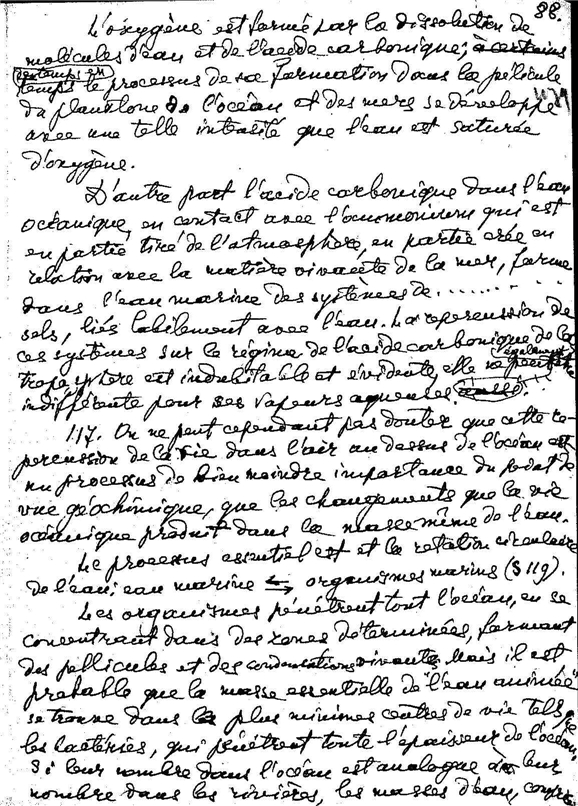 88.
L'oxygène est formé par la dissolution de
molécules d'eau et de l'acide carbonique; à certains
temps le processus de sa formation dans la pélicule
du planktone de l'océan et des mers se développe
avec une telle intensité que l'eau est saturée
d'oxygène.
D'autre part l'acide carbonique dans l'eau
océanique, en contact avec l'ammonium qui est
en partie tiré de l'atmosphère, en partie crée en
relation avec la matière vivante de la mer, forme
dans l'eau marine des systèmes de.........
sels, liés labilement avec l'eau. La repercussion de
ces systèmes sur le régime de l'acide carbonique de la
troposphère est indubitable et évidente, elle ne peut être
indifférente pour ses vapeurs aqueuses également.
117. On ne peut cependant pas douter que cette re-
percussion de la vie dans l'air au dessus de l'océan est
un processus de bien moindre importance du point de
vue géochimique, que les changements que la vie
océanique produit dans la masse même de l'eau.
Le processus essentiel est et la relation circulaire
de l'eau: eau marine ⇆ organismes marins (§ 119).
Les organismes pénétrent tout l'océan, en se
concentrant dans des zones déterminées, formant
des pellicules et des condensations vivantes. Mais il est
probable que la masse essentielle de "l'eau animée"
se trouve dans les plus minimes centres de vie tels que
les bactéries, qui pénétrent toute l'épaisseur de l'océan.
Si leur nombre dans l'océan est analogue à leur
nombre dans les rivières, les masses d'eau,